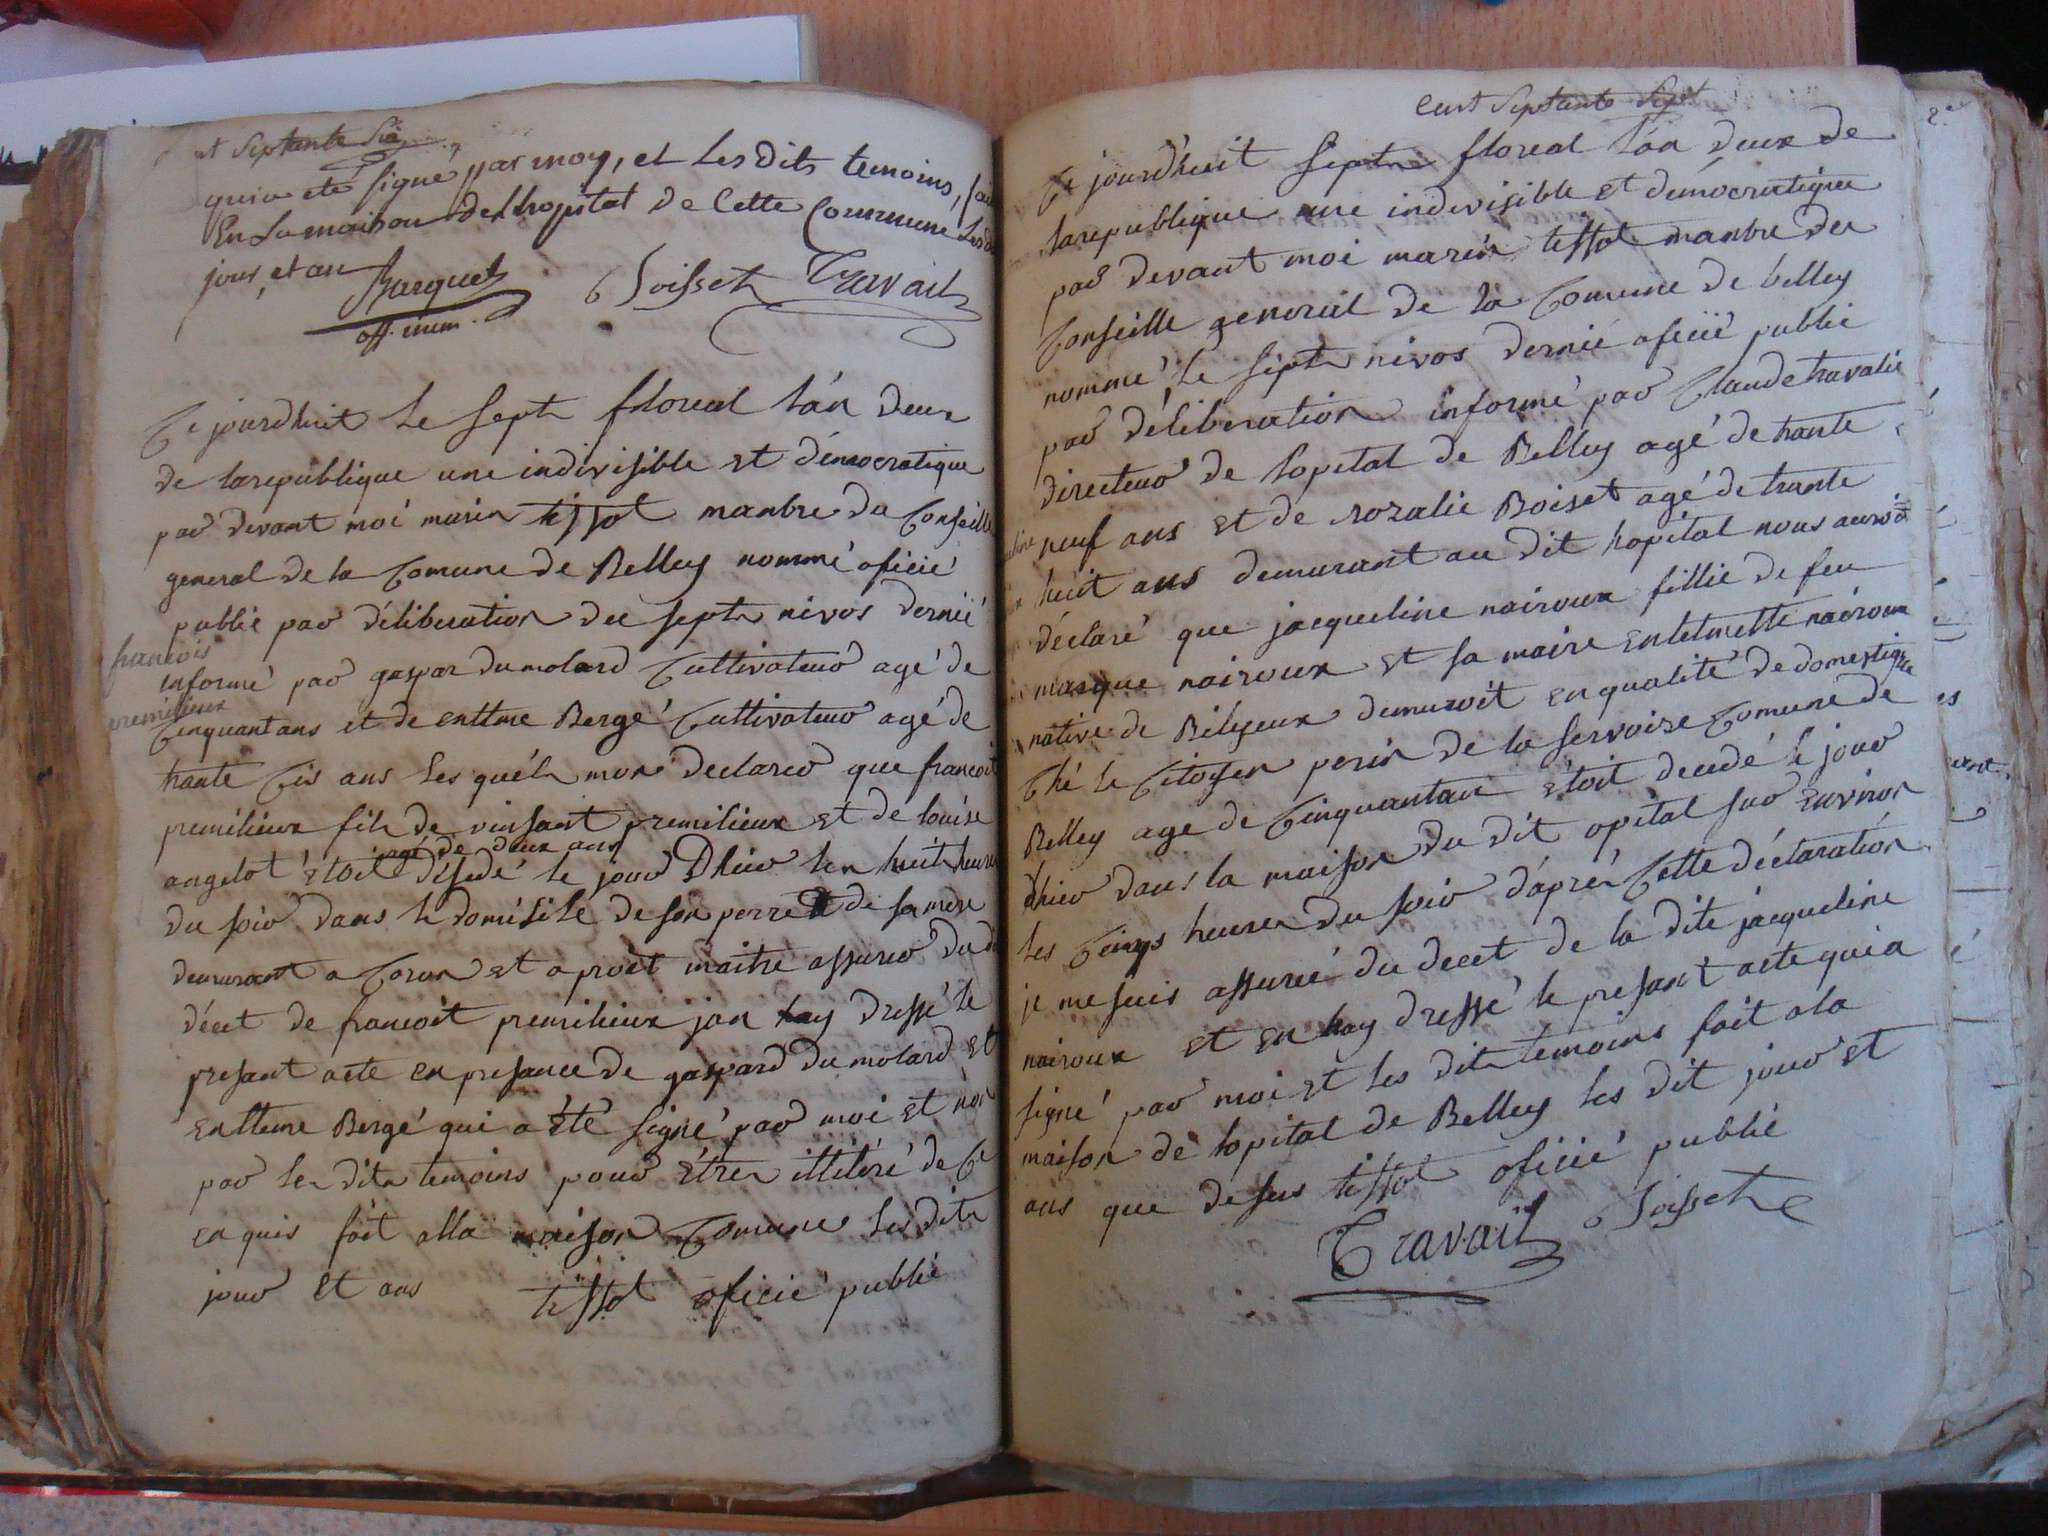 Septante Six
qui a eté signé par moy, et les dits temoins,
En la maison de l'hopital de cette Commune
jour, et an
Barquet Boisset Travail
off. mun.
Ce jourdhuit le sept floreal l'án deux
de larepublique une indivisible et démocratique
par devant moi marin tissot manbre du Conseille
general de la Comune de Belley nommé oficié
publié par déliberation du sept nivos dernié
francois
informé par gaspar dumolard Cultivateur agé de
premilieux
Cinquant ans et de entlme Bergé Cultivateur agé de
trante Cis ans les quéls mon declareré que francoit
premilieux fils de vinsant premilieux et de louise
agé de deux ans
angelot étoit désedé le jour Dhier les huit heures
du soir dans le domisile de son perre et de sa mere
demurant a Coron et aproit maitre assurer du dit
décet de francoit premilieux jan hay dressé le
presant acte en presance de gaspard du molard et
entleme Bergé qui a été signé par moi et non
par les dits temoins pour étres illiteré de Ce
enquis fait alla maison Comune les dits
jour et ans tissot oficié publié
Cent Septante Sept
Ce jourdhuit septe floreal l'án deux de
larepublique une indivisible et démocratique
par devant moi marin tissot manbre du
Conseille general de la Comune de belley
nommé le sept nivos dernié oficié publié
par déliberation informé par Claude travalie
directeur de lopital de Belley agé de trante
neuf ans et de rozalie Boiset agé de trante
huit ans demurant au dit hopital nous auroit
déclaré que jacqueline nairoux fillie de feu
marque nairoux et sa maire entelmette nairoux
native de Biligneux demuroit en qualité de domestique
Ché le Citoyen perin de la servoize Comune de
Belley age de Cinquantan étoit decedé le jour
dhier dans la maison du dit opital sur environ
les Cinqs heures du soir d'aprés Cette déclaration
je me suis assurré du decet de la dite jacqueline
nairoux et en hay dressé le presant acte qui a
signé par moi et les dits temoins fait a la
maison de lopital de Belley les dit jour et
ans que desus tissot oficié publié
Travail Boisset